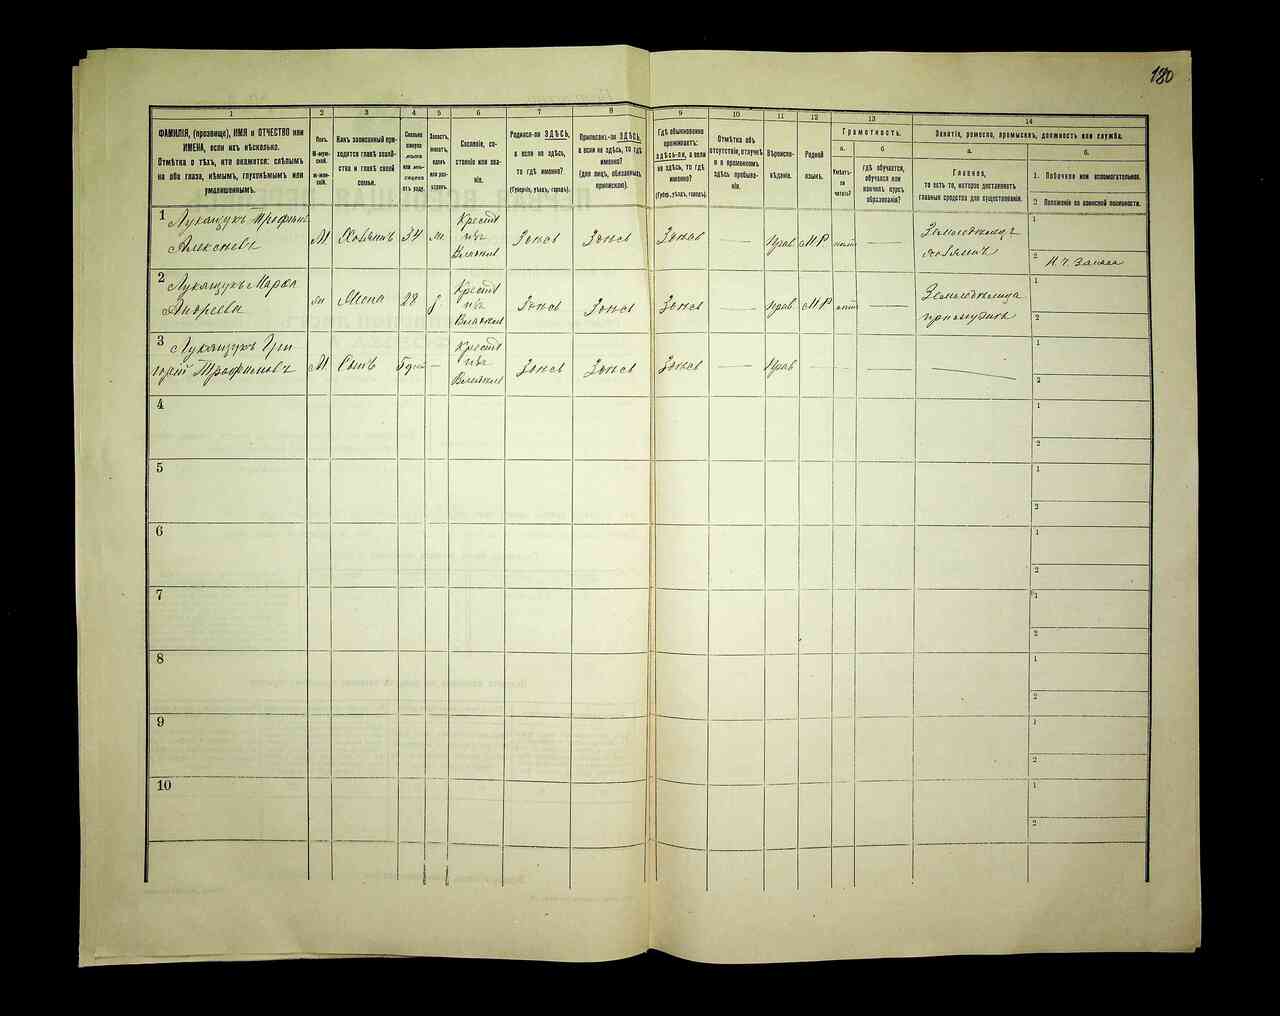 130
1
2
3
4
5
6
7
8
9
10
11
12
13
14
ФАМИЛІЯ, (прозвище), ИМЯ и ОТЧЕСТВО или
ИМЕНА, если ихъ нѣсколько.
Отмѣтка о тѣхъ, кто окажется: слѣпымъ
на оба глаза, нѣмымъ, глухонѣмымъ или
умалишеннымъ.
Полъ.
М-муж-
ской.
ж-жен-
скій.
Какъ записанный при-
ходится главѣ хозяй-
ства и главѣ своей
семьи.
Сколько
минуло
лѣтъ
или мѣ-
сяцевъ
отъ роду.
Холостъ,
женатъ,
вдовъ
или раз-
веденъ.
Сословіе, со-
стояніе или зва-
ніе.
Родился-ли ЗДѢСЬ,
а если не здѣсь,
то гдѣ именно?
(Губернія, уѣздъ, городъ).
Приписанъ-ли ЗДѢСЬ,
а если не здѣсь, то гдѣ
именно?
(для лицъ, обязанныхъ
припиской).
Гдѣ обыкновенно
проживаетъ:
ЗДѢСЬ-ЛИ, а если
не здѣсь, то гдѣ
именно?
(Губерн., уѣздъ, городъ).
Отмѣтка объ
отсутствіи, отлучкѣ
и о временномъ
здѣсь пребыва-
ніи.
Вѣроиспо-
вѣданіе.
Родной
языкъ.
Грамотность.
а.
Умѣетъ-
ли
читать?
б
гдѣ обучается,
обучался или
кончилъ курсъ
образованія?
Занятіе, ремесло, промыселъ, должность или служба.
а.
Главное,
то есть то, которое доставляетъ
главныя средства для существованія.
б.
1. Побочное или вспомогательное.
2 Положеніе по воинской повинности.
1 Лукащукъ Трофимъ
Алексѣевъ
М
Хозяинъ
34
ж.
Крестъ
изъ
Владѣльч
Здѣсь
Здѣсь
Здѣсь
—
Прав
МР
нѣтъ
—
Земледѣлецъ
хозяинъ
1
2
2 Лукащукъ Марья
Андреева
ж
Жена
Крестъ
изъ
Владѣльч
Здѣсь
Здѣсь
Здѣсь
—
Прав
МР
нѣтъ
—
Земледѣлица
при мужѣ
1
2
3 Лукащукъ Гри-
горій Трофимовъ
М
Сынъ
—
Крестъ
изъ
Владѣльч
Здѣсь
Здѣсь
Здѣсь
—
Прав
—
1
2
4
1
2
5
1
2
6
1
2
7
1
2
8
1
2
9
1
2
10
1
2